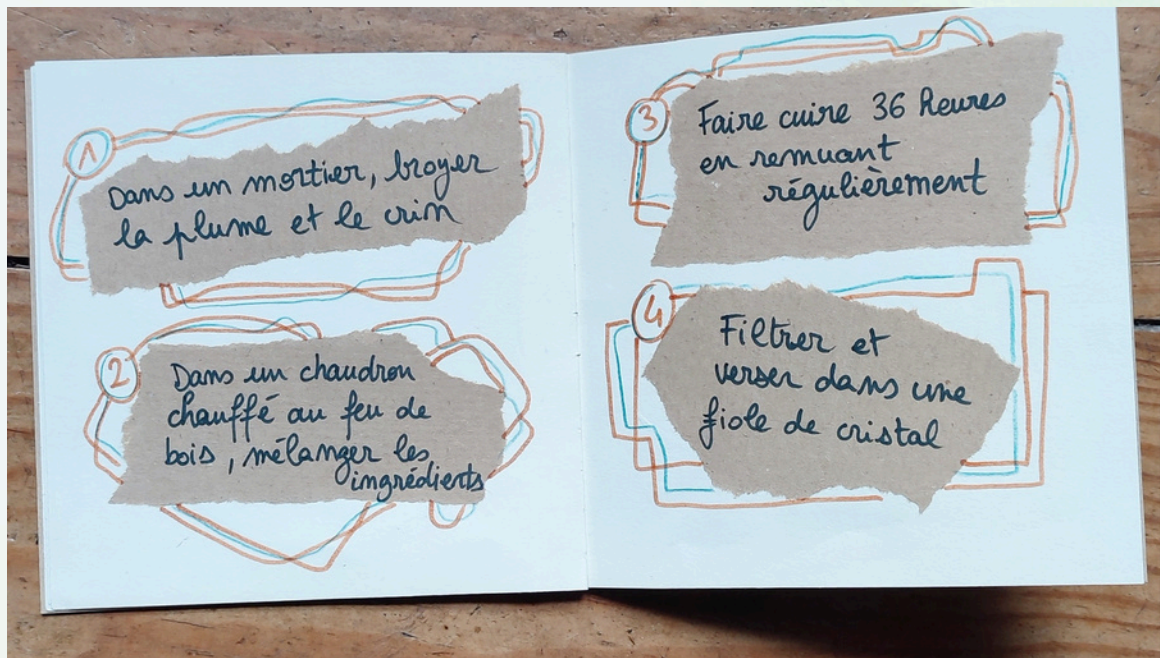 1
Dans un mortier, broyer
la plume et le crin
2
Dans un chaudron
chauffé au feu de
bois, mélanger les
ingrédients
3
Faire cuire 36 heures
en remuant
régulièrement
4
Filtrer et
verser dans une
fiole de cristal